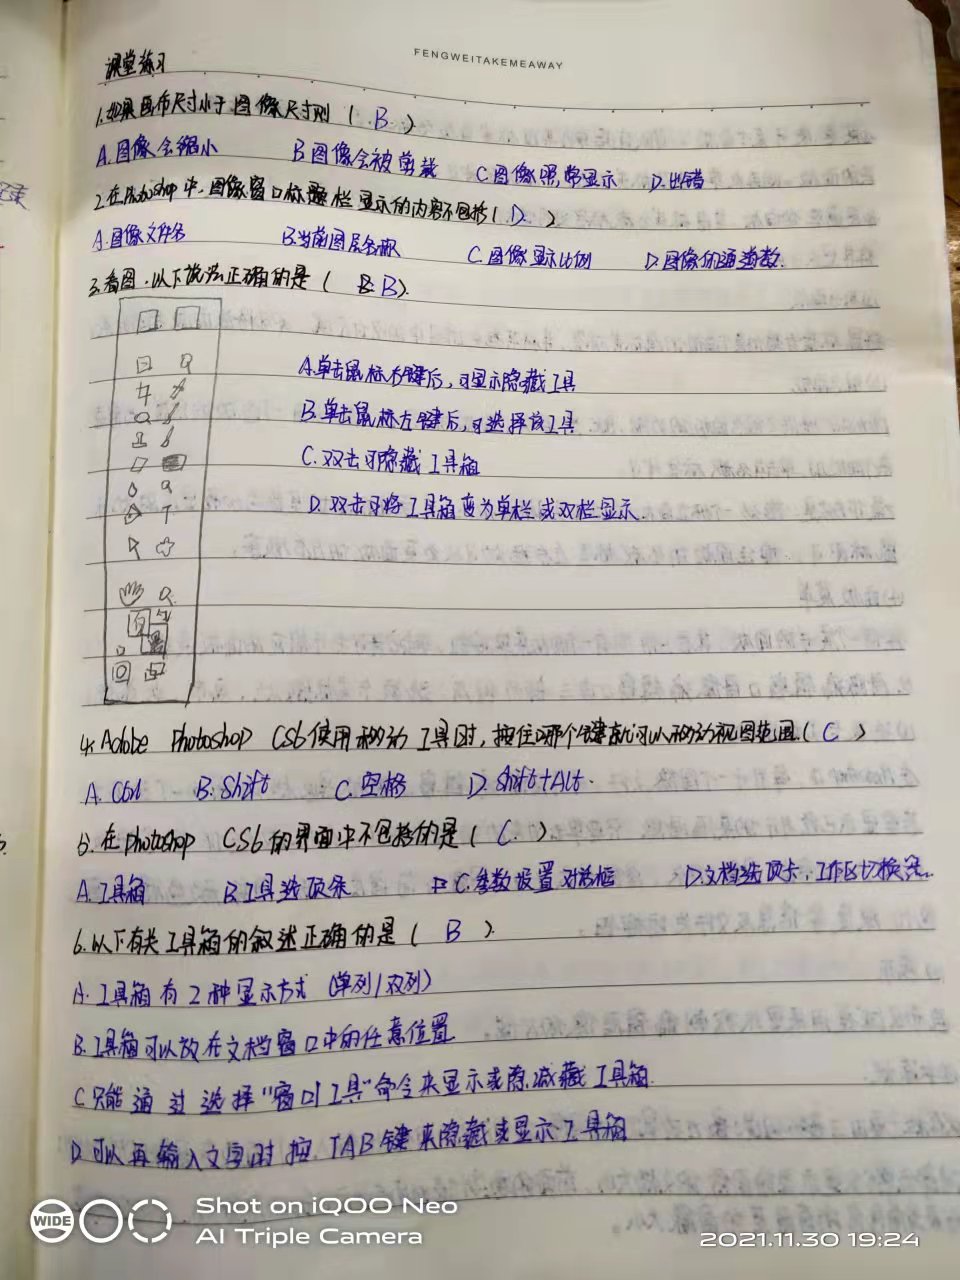 FENGWEITAKEMEAWAY
课堂练习
1.如果画布尺寸小于图像尺寸则( B )
A.图像会缩小 B.图像会被剪裁 C.图像照常显示 D.出错
2.在Photoshop中,图像窗口标题栏显示的内容不包括( D )
A.图像文件名 B.当前图层名称 C.图像显示比例 D.图像的通道数.
3.看图,以下说法正确的是( B).
A.单击鼠标右键后,可显示隐藏工具
B.单击鼠标左键后,可选择该工具
C.双击可隐藏工具箱
D.双击可将工具箱变为单栏或双栏显示.
4.Adobe Photoshop CS6使用移动工具时,按住哪个键就可以移动视图范围.( C )
A. Ctrl B. Shift C.空格 D. Shift+Alt.
5.在Photoshop CS6的界面中不包括的是( C. ).
A.工具箱 B.工具选项条 C.参数设置对话框 D.文档选项卡,工作区切换器..
6.以下有关工具箱的叙述正确的是( B ).
A.工具箱有2种显示方式(单列/双列)
B.工具箱可以放在文档窗口中的任意位置.
C.只能通过选择"窗口/工具"命令来显示或隐藏工具箱.
D.可以再输入文字时按TAB键来隐藏或显示工具箱
WIDE
Shot on iQOO Neo
AI Triple Camera
2021.11.30 19:24